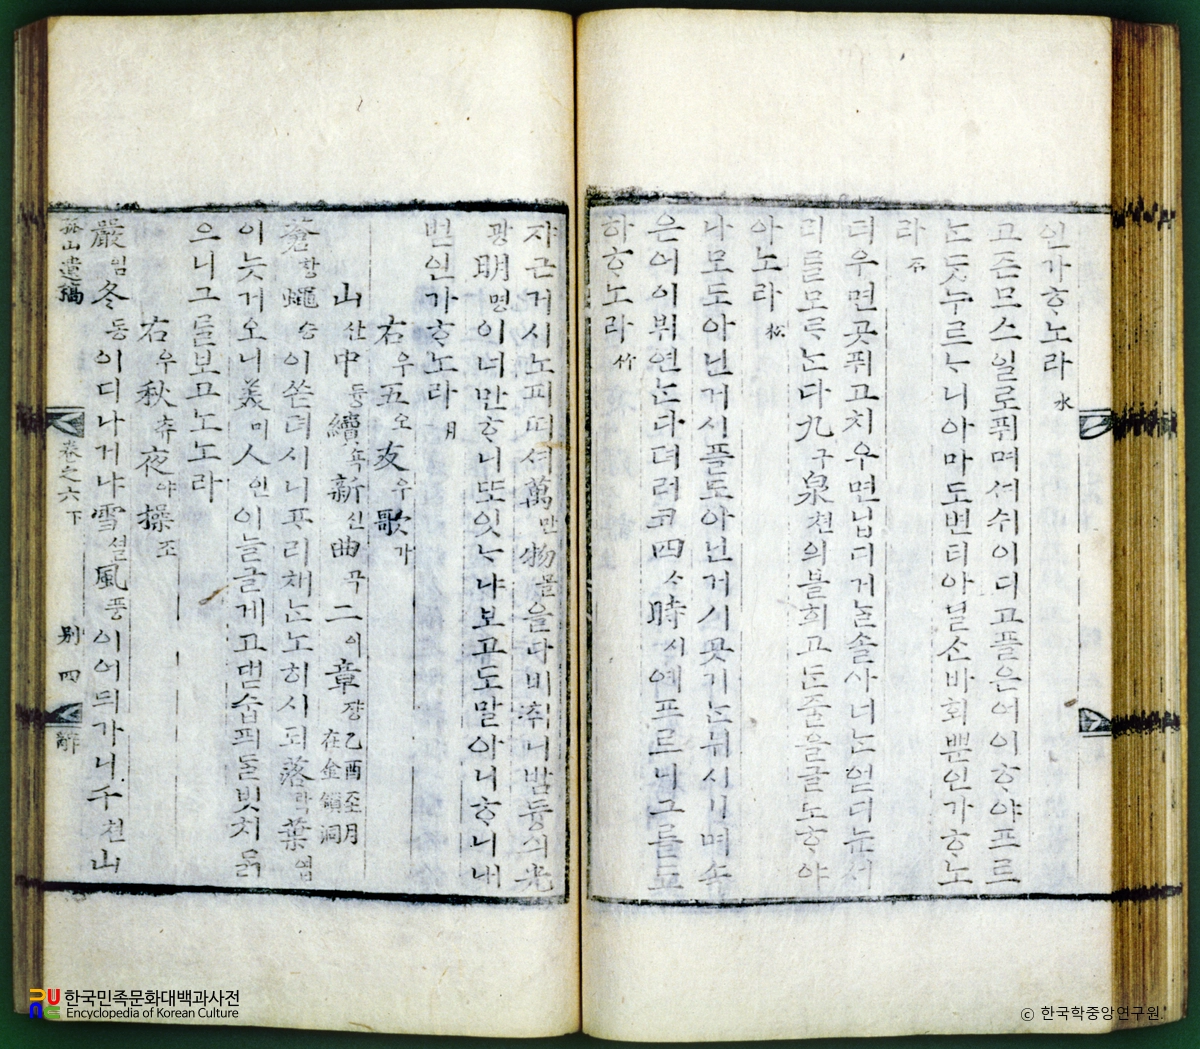 인가ᄒᆞ노라 水
고즌므스일로퓌며셔쉬이디고플은어이ᄒᆞ야프르
ᄂᆞᆫᄃᆞᆺ누르ᄂᆞ니아마도변티아닐ᄉᆞᆫ바회뿐인가ᄒᆞ노
라 石
더우면곳퓌고치우면닙디거ᄂᆞᆯ솔아너ᄂᆞᆫ얻디눈서
리ᄅᆞᆯ모ᄅᆞᄂᆞᆫ다九구泉쳔의블희고ᄃᆞᆫ줄을글로ᄒᆞ야
아노라 松
나모도아닌거시플도아닌거시곳기ᄂᆞᆫ뉘시기며속
은어이뷔연ᄂᆞᆫ다뎌러코四ᄉᆞ時시예프르니그를됴
하ᄒᆞ노라 竹
쟈근거시노피떠셔萬만物믈을다비취니밤듕의光
광明명이너만ᄒᆞ니또잇ᄂᆞ냐보고도말아니ᄒᆞ니내
벋인가ᄒᆞ노라 月
右우五오友우歌가
山산中듕續쇽新신曲곡二이章쟝 乙酉至月
在金鎖洞
蒼창蠅승이ᄡᅳᆫ뎌시니ᄑᆞ리채ᄂᆞᆫ노히시되落락葉엽
이늣거오니美미人인이늘글게고댇숩픠ᄃᆞᆯ빗치ᄆᆞᆰ
으니그를보고노노라
右우秋츄夜야操조
嚴엄冬동이디나거냐雪셜風풍이어듸가니千쳔山
孤山遺稿 卷之六下 別 四 辭
한국민족문화대백과사전
Encyclopedia of Korean Culture
ⓒ 한국학중앙연구원.